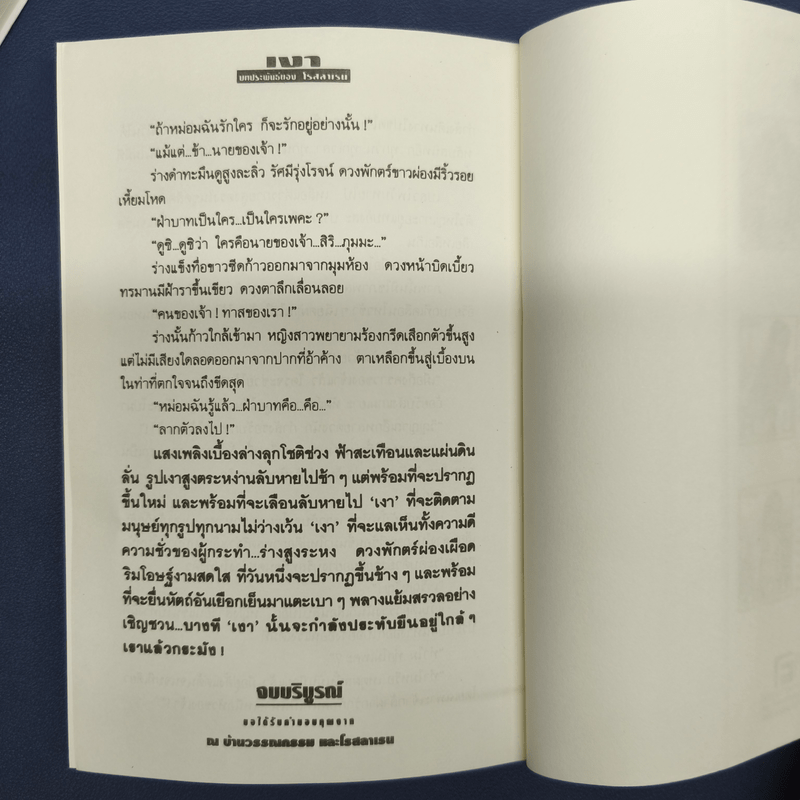 เงา
บทประพันธ์ของ โรสลาเรน
“ถ้าหม่อมฉันรักใคร ก็จะรักอยู่อย่างนั้น !”
“แม้แต่...ข้า...นายของเจ้า !”
ร่างดำทะมึนดูสูงละลิ่ว รัศมีรุ่งโรจน์ ดวงพักตร์ขาวผ่องมีริ้วรอย
เหี้ยมโหด
“ฝ่าบาทเป็นใคร...เป็นใครเพคะ ?”
“ดูซิ...ดูซิว่า ใครคือนายของเจ้า...สิริ...ภุมมะ...”
ร่างแข็งทื่อขาวซีดก้าวออกมาจากมุมห้อง ดวงหน้าบิดเบี้ยว
ทรมานมีฝ้าราขึ้นเขียว ดวงตาลึกเลื่อนลอย
“คนของเจ้า ! ทาสของเรา !”
ร่างนั้นก้าวใกล้เข้ามา หญิงสาวพยายามร้องกรีดเสือกตัวขึ้นสูง
แต่ไม่มีเสียงใดลอดออกมาจากปากที่อ้าค้าง ตาเหลือกขึ้นสู่เบื้องบน
ในท่าที่ตกใจจนถึงขีดสุด
“หม่อมฉันรู้แล้ว...ฝ่าบาทคือ...คือ...”
“ลากตัวลงไป !”
แสงเพลิงเบื้องล่างลุกโชติช่วง ฟ้าสะเทือนและแผ่นดิน
ลั่น รูปเงาสูงตระหง่านลับหายไปช้า ๆ แต่พร้อมที่จะปรากฏ
ขึ้นใหม่ และพร้อมที่จะเลือนลับหายไป ‘เงา’ ที่จะติดตาม
มนุษย์ทุกรูปทุกนามไม่ว่างเว้น ‘เงา’ ที่จะแลเห็นทั้งความดี
ความชั่วของผู้กระทำ...ร่างสูงระหง ดวงพักตร์ผ่องเผือด
ริมโอษฐ์งามสดใส ที่วันหนึ่งจะปรากฏขึ้นข้าง ๆ และพร้อม
ที่จะยื่นหัตถ์อันเยือกเย็นมาแตะเบา ๆ พลางแย้มสรวลอย่าง
เชิญชวน...บางที ‘เงา’ นั้นจะกำลังประทับยืนอยู่ใกล้ ๆ
เราแล้วกระมัง !
จบบริบูรณ์
ขอได้รับคำขอบคุณจาก
ณ บ้านวรรณกรรม และโรสลาเรน